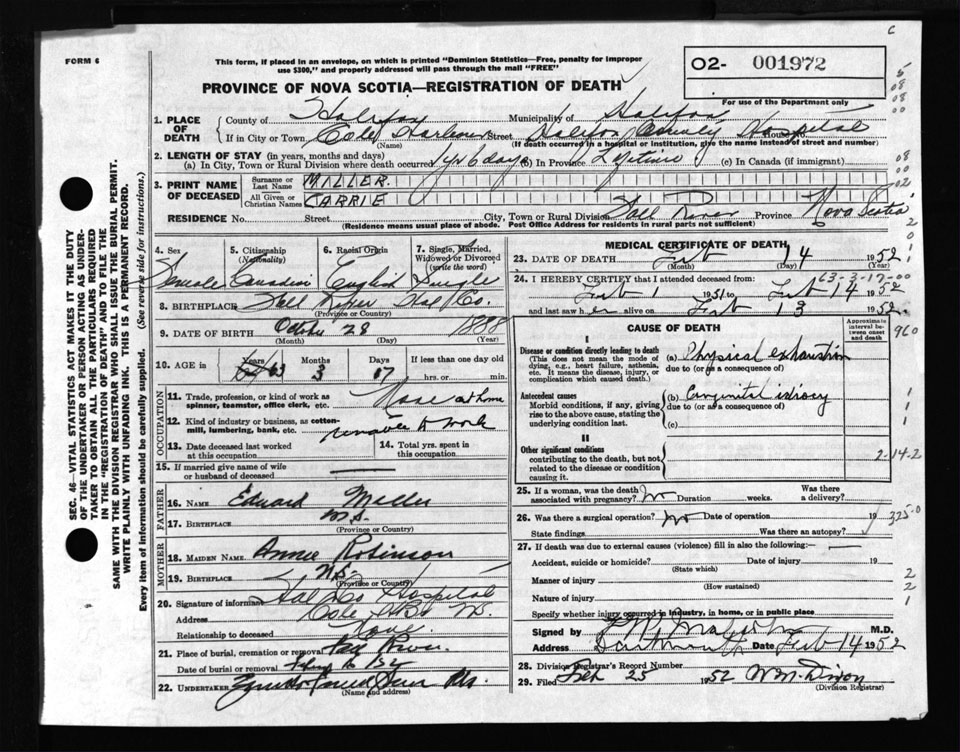 FORM 6
This form, if placed in an envelope, on which is printed "Dominion Statistics—Free, penalty for improper
use $300," and properly addressed will pass through the mail "FREE"
O2- 001972
PROVINCE OF NOVA SCOTIA—REGISTRATION OF DEATH
For use of the Department only
1. PLACE OF DEATH
County of Halifax Municipality of Halifax
If in City or Town Cole Harbour Street Halifax County Hospital House No.
(Name) (If death occurred in a hospital or institution, give the name instead of street and number)
2. LENGTH OF STAY (in years, months and days)
(a) In City, Town or Rural Division where death occurred 1 yr 6 days (b) in Province Lifetime (c) In Canada (if immigrant)
3. PRINT NAME OF DECEASED
Surname or Last Name MILLER.
All Given or Christian Names CARRIE
RESIDENCE No. Street City, Town or Rural Division Fall River Province Nova Scotia
(Residence means usual place of abode. Post Office Address for residents in rural parts not sufficient)
4. Sex 5. Citizenship (Nationality) 6. Racial Origin 7. Single, Married, Widowed or Divorced (write the word)
Female Canadian English Single
8. BIRTHPLACE Fall River Hal Co.
(Province or Country)
9. DATE OF BIRTH October 28 1888
(Month) (Day) (Year)
10. AGE in Years 63 Months 3 Days 17 If less than one day old
hrs. or min.
OCCUPATION
11. Trade, profession, or kind of work as spinner, teamster, office clerk, etc. None at home
12. Kind of industry or business, as cotton-mill, lumbering, bank, etc. unable to work
13. Date deceased last worked at this occupation
14. Total yrs. spent in this occupation
15. If married give name of wife or husband of deceased
FATHER
16. NAME Edward Miller
17. BIRTHPLACE N.S.
(Province or Country)
MOTHER
18. MAIDEN NAME Annie Robinson
19. BIRTHPLACE N.S.
(Province or Country)
20. Signature of informant Hal Co Hospital
Address Cole
Relationship to deceased
21. Place of burial, cremation or removal Fall River
Date of burial or removal
22. UNDERTAKER
(Name and address)
MEDICAL CERTIFICATE OF DEATH
23. DATE OF DEATH Feb 14 1952
(Month) (Day) (Year)
24. I HEREBY CERTIFY that I attended deceased from: 63-3-17-00
Feb 1 1951 to Feb 14 1952
and last saw her alive on Feb 13 1952
CAUSE OF DEATH
Approximate interval between onset and death
I
Disease or condition directly leading to death
(This does not mean the mode of dying, e.g., heart failure, asthenia, etc. It means the disease, injury, or complication which caused death.)
(a) Physical exhaustion
due to (or as a consequence of)
Antecedent causes
Morbid conditions, if any, giving rise to the above cause, stating the underlying condition last.
(b) Congenital idiocy
due to (or as a consequence of)
(c)
II
Other significant conditions
contributing to the death, but not related to the disease or condition causing it.
25. If a woman, was the death associated with pregnancy? No Duration weeks. Was there a delivery?
26. Was there a surgical operation? No Date of operation 19
State findings Was there an autopsy?
27. If death was due to external causes (violence) fill in also the following:—
Accident, suicide or homicide? Date of injury 19
(State which)
Manner of injury
(How sustained)
Nature of injury
Specify whether injury occurred in industry, in home, or in public place
Signed by M.D.
Address Dartmouth Date Feb 14 1952
28. Division Registrar's Record Number
29. Filed Feb 25 1952 W.M. Dixon
(Division Registrar)
SEC. 46—VITAL STATISTICS ACT MAKES IT THE DUTY
OF THE UNDERTAKER OR PERSON ACTING AS UNDER-
TAKER TO OBTAIN ALL THE PARTICULARS REQUIRED
IN THE "REGISTRATION OF DEATH" AND TO FILE THE
SAME WITH THE DIVISION REGISTRAR WHO SHALL ISSUE THE BURIAL PERMIT.
WRITE PLAINLY WITH UNFADING INK. THIS IS A PERMANENT RECORD.
Every item of information should be carefully supplied. (See reverse side for instructions.)
960
2-14-2
325-0